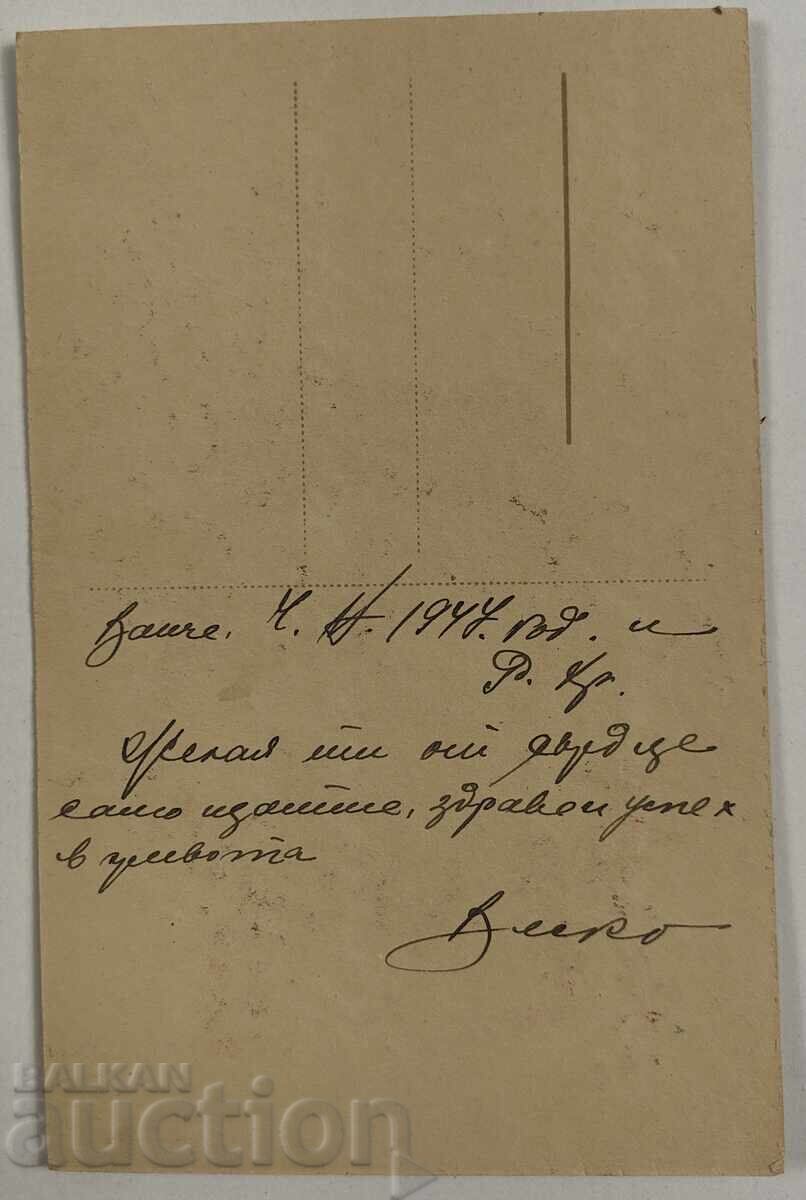 Ванче, 4. IV. 1947. год. и
Р. Хр.
Желая ти от сърдце
само щастие, здраве и успех
в живота
Вик
BALKAN
auction